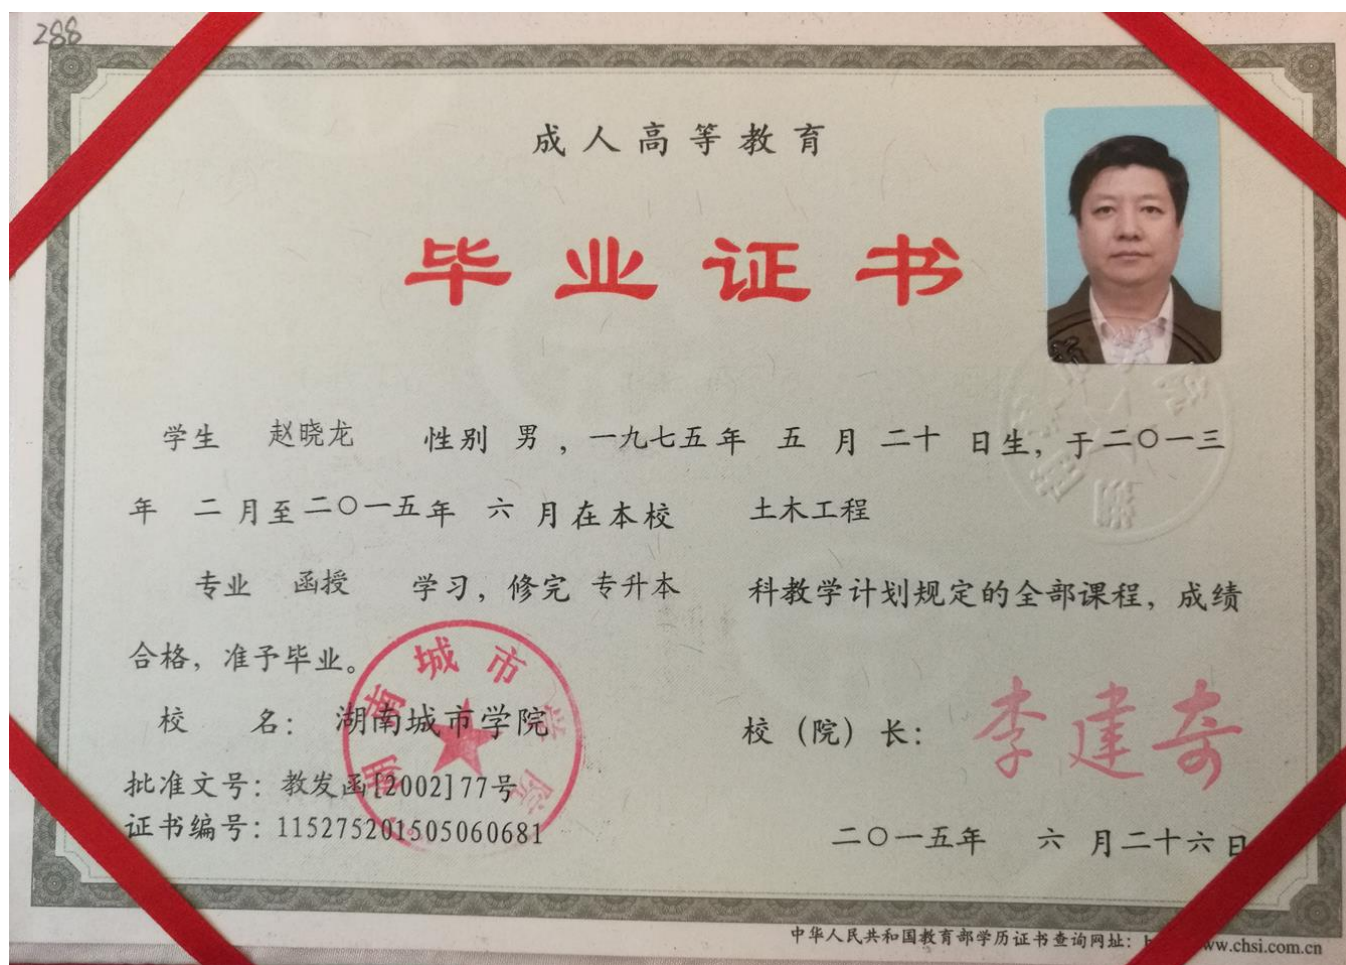 288
成人高等教育
毕业证书
学生 赵晓龙 性别 男，一九七五年 五 月 二十 日生，于二〇一三
年 二月至二〇一五年 六 月在本校 土木工程
专业 函授 学习，修完 专升本 科教学计划规定的全部课程，成绩
合格，准予毕业。
校 名：湖南城市学院
校（院）长：李建奇
批准文号：教发函[2002]77号
证书编号：115275201505060681
二〇一五年 六 月二十六日
湖南城市学院
中华人民共和国教育部学历证书查询网址：ww.chsi.com.cn